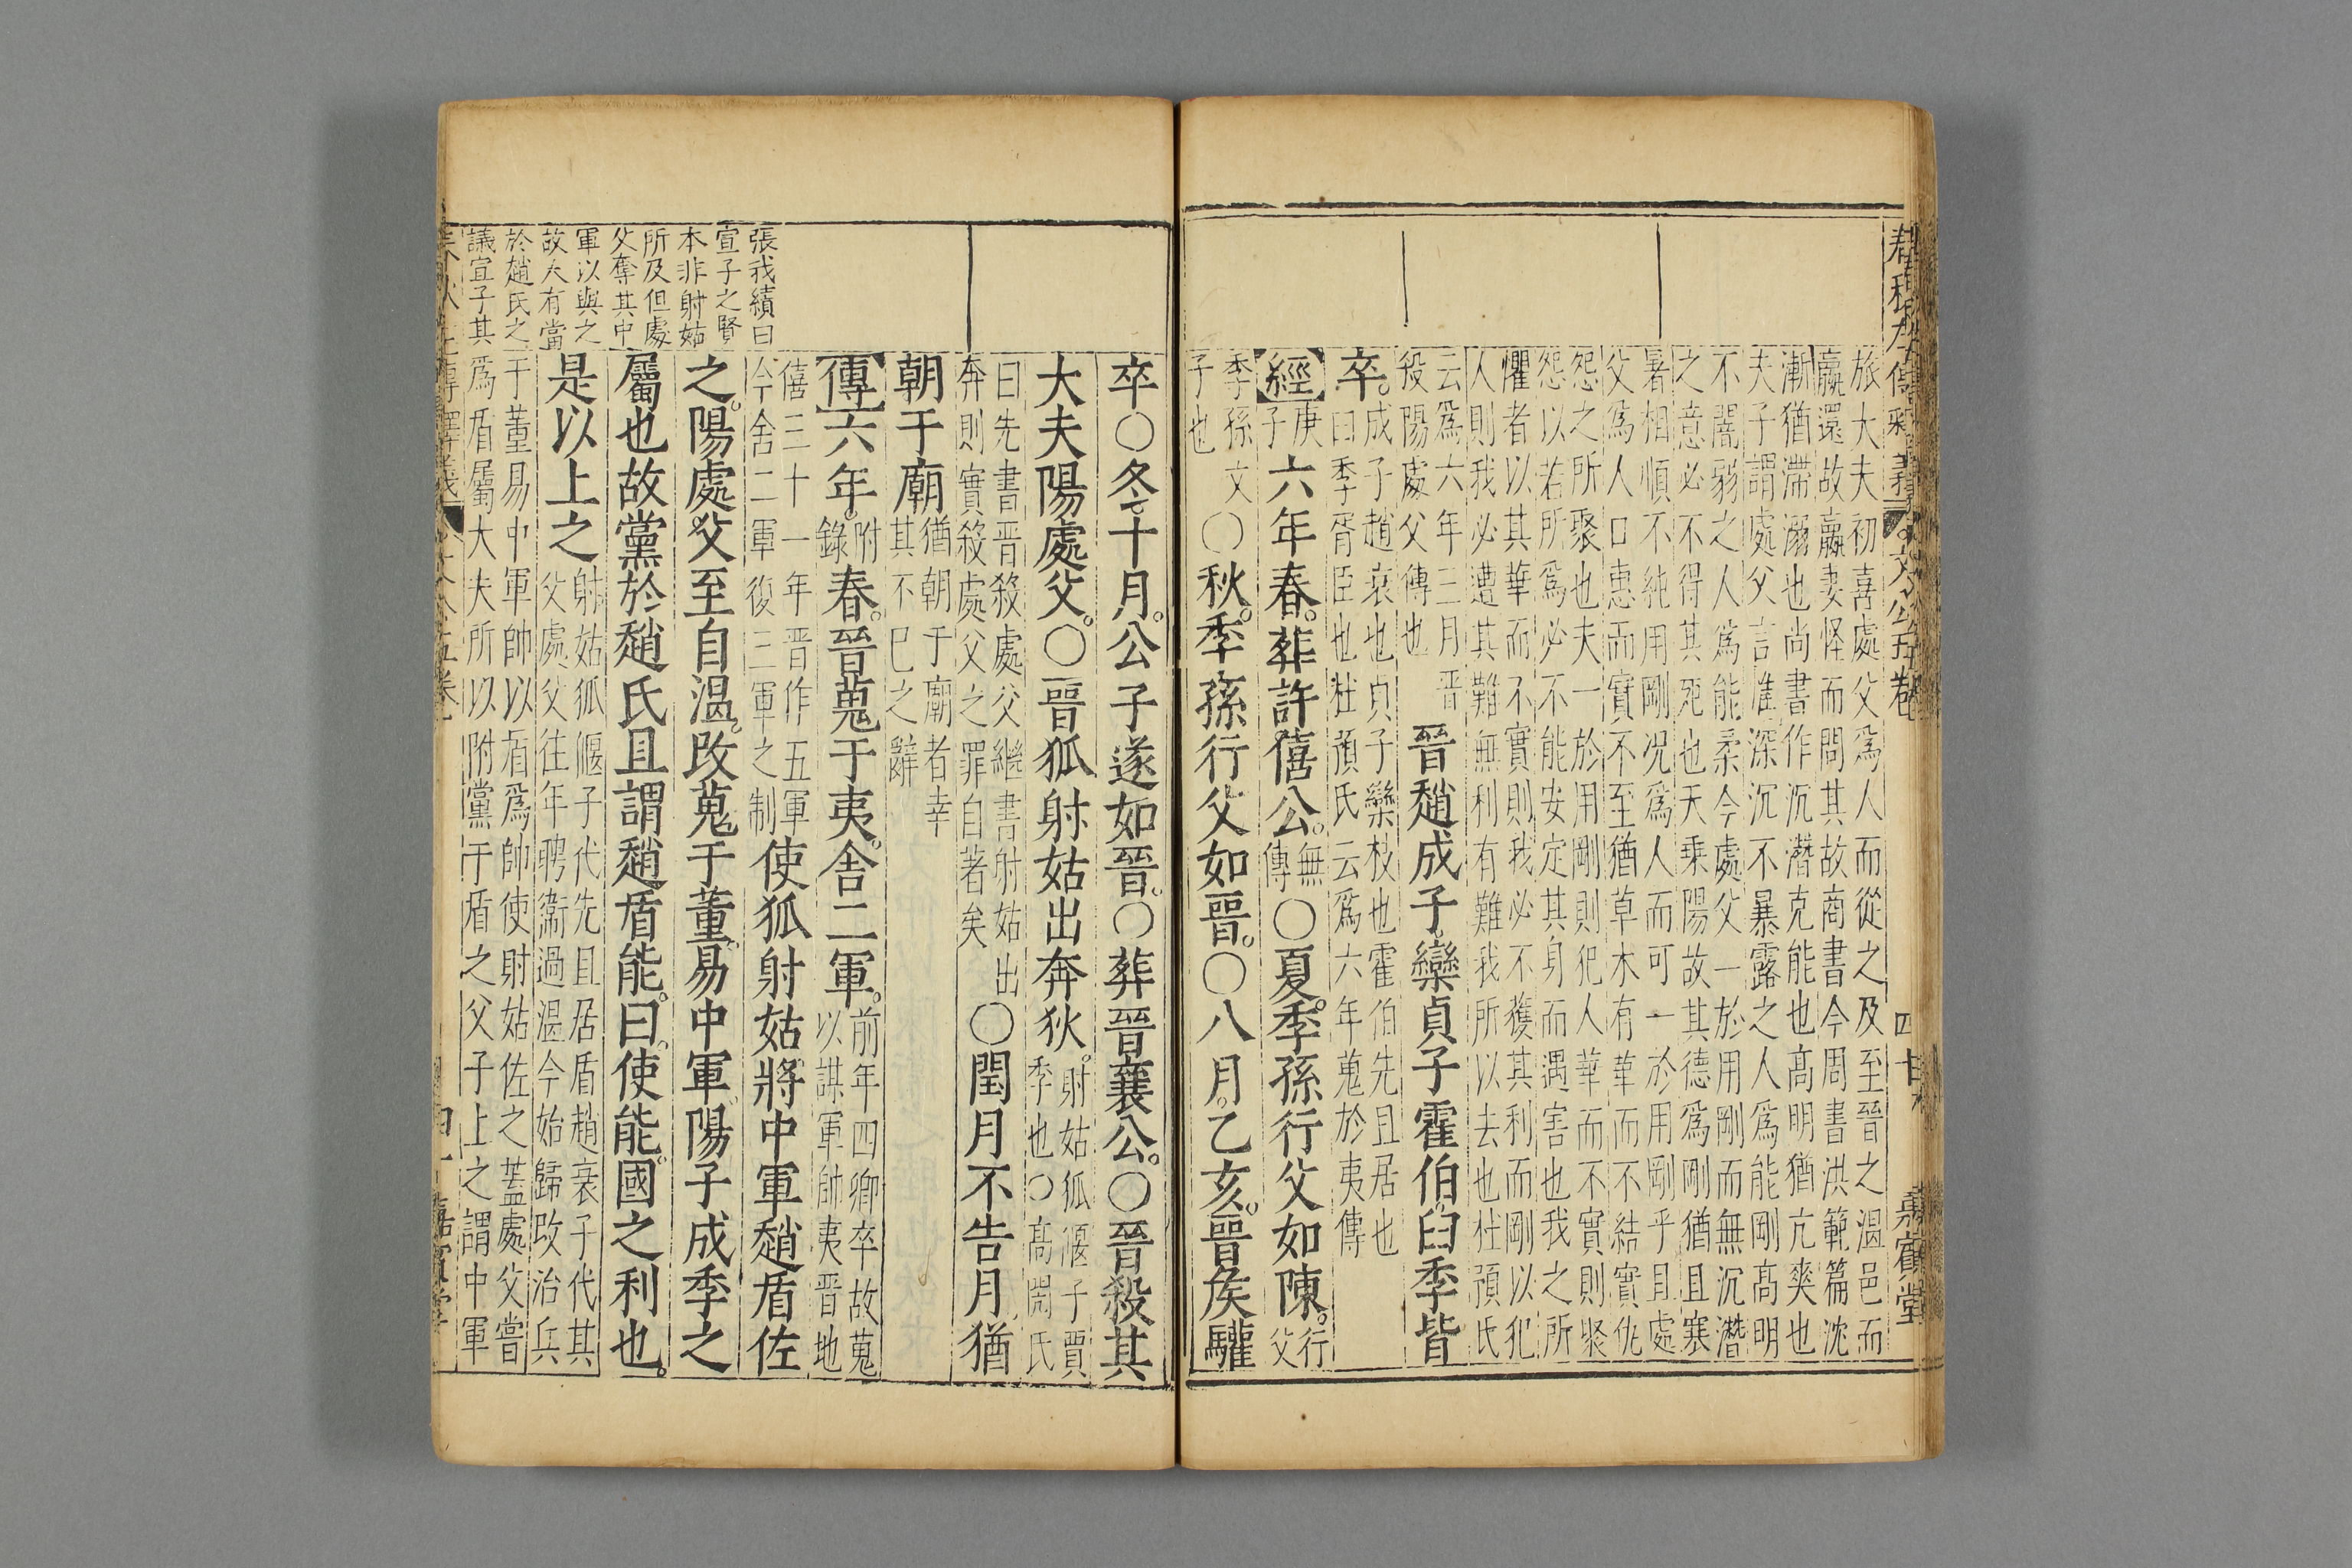 春秋左傳釋義 文公五卷 四十 嘉賓堂
旅大夫初喜處父爲人而從之及至晉之溫邑而
嬴還故嬴妻怪而問其故商書今周書洪範篇沈
漸猶滯溺也尚書作沉潛克能也高明猶亢爽也
夫子謂處父言進深沉不暴露之人爲能剛高明
不闇弱之人爲能柔今處父一於用剛而無沉潛
之意必不得其死也天乘陽故其德爲剛猶且寒
暑相順不純用剛况爲人而可一於用剛乎且處
父爲人口惠而實不至猶草木有華而不結實仇
怨之所聚也夫一於用剛則犯人華而不實則聚
怨以若所爲必不能安定其身而遇害也我之所
懼者以其華而不實則我必不獲其利而剛以犯
人則我必遭其難無利有難我所以去也杜預氏
云爲六年三月晉
殺陽處父傳也
晉趙成子欒貞子霍伯臼季皆
卒成子趙衰也貞子欒枝也霍伯先且居也
曰季胥臣也杜預氏云爲六年蒐於夷傳
經庚子六年春葬許僖公無傳○夏季孫行父如陳行父
季孫文子也○秋季孫行父如晉○八月乙亥晉侯驩
卒○冬十月公子遂如晉○葬晉襄公○晉殺其
大夫陽處父○晉狐射姑出奔狄射姑狐偃子賈季也○高閌氏
曰先書晉殺處父繼書射姑出
奔則實殺處父之罪自著矣○閏月不告月猶
朝于廟猶朝于廟者幸其不已之辭
傳六年附錄春晉蒐于夷舍二軍前年四卿卒故蒐以謀軍帥夷晉地
僖三十一年晉作五軍
今舍二軍復三軍之制使狐射姑將中軍趙盾佐
之陽處父至自溫改蒐于董易中軍陽子成季之
屬也故黨於趙氏且謂趙盾能曰使能國之利也
是以上之射姑狐偃子代先且居盾趙衰子代其父處父往年聘衞過溫今始歸改治兵
于董易中軍帥以盾爲帥使射姑佐之蓋處父嘗
爲盾屬大夫所以附黨于盾之父子上之謂中軍
張我續曰
宣子之賢
本非射姑
所及但處
父奪其中
軍以與之
故大有當
於趙氏之
議宣子其